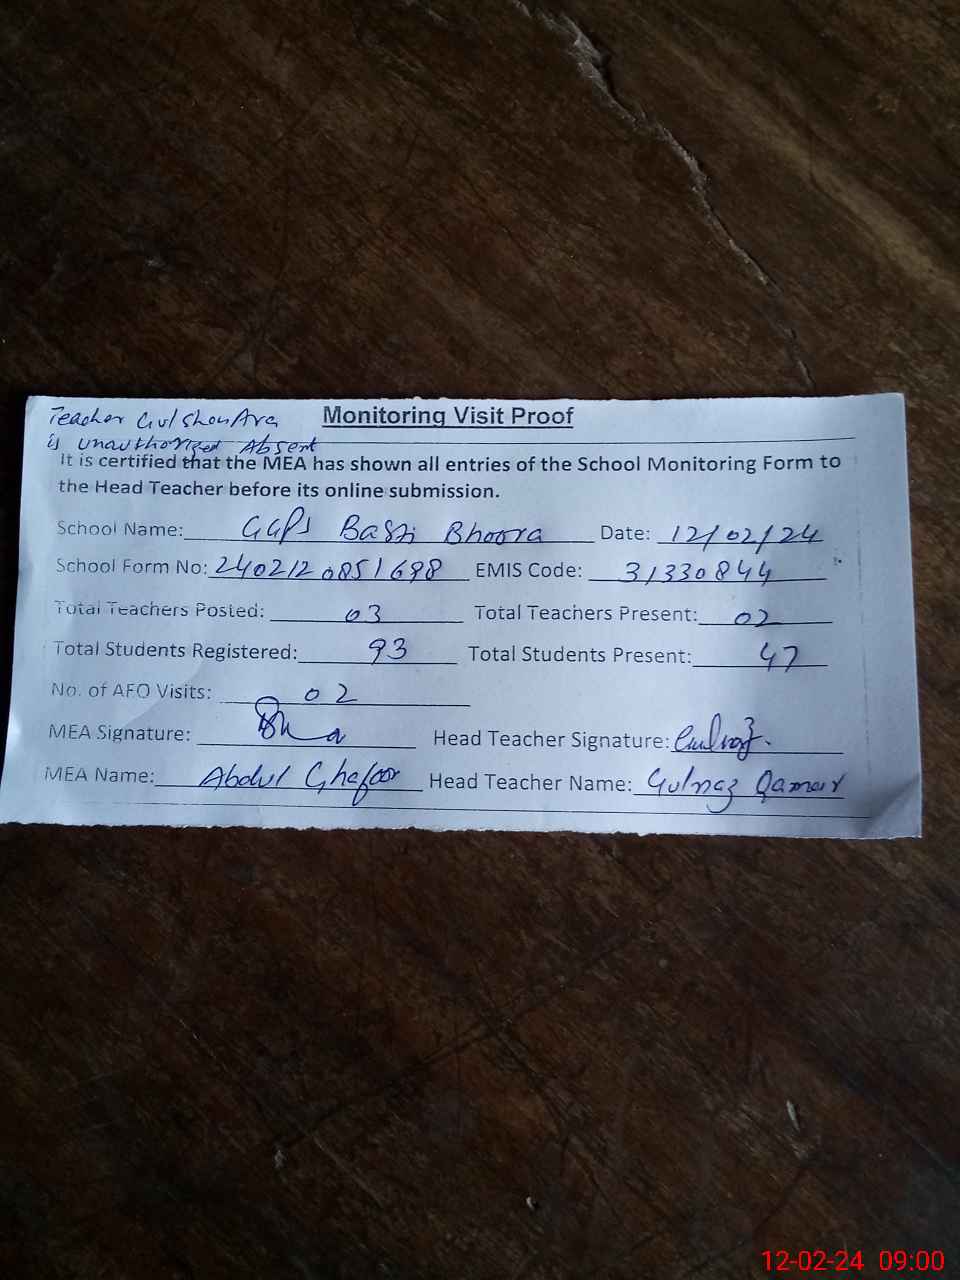 Monitoring Visit Proof
Teacher Gulshan Ara
is unauthorized Absent
It is certified that the MEA has shown all entries of the School Monitoring Form to
the Head Teacher before its online submission.
School Name: GGPS Basti Bhoora Date: 12/02/24
School Form No: 2402120851698 EMIS Code: 31330844
Total Teachers Posted: 03 Total Teachers Present: 02
Total Students Registered: 93 Total Students Present: 47
No. of AEO Visits: 02
MEA Signature: Head Teacher Signature: Gulnaz.
MEA Name: Abdul Ghafoor Head Teacher Name: Gulnaz Qamar
12-02-24 09:00